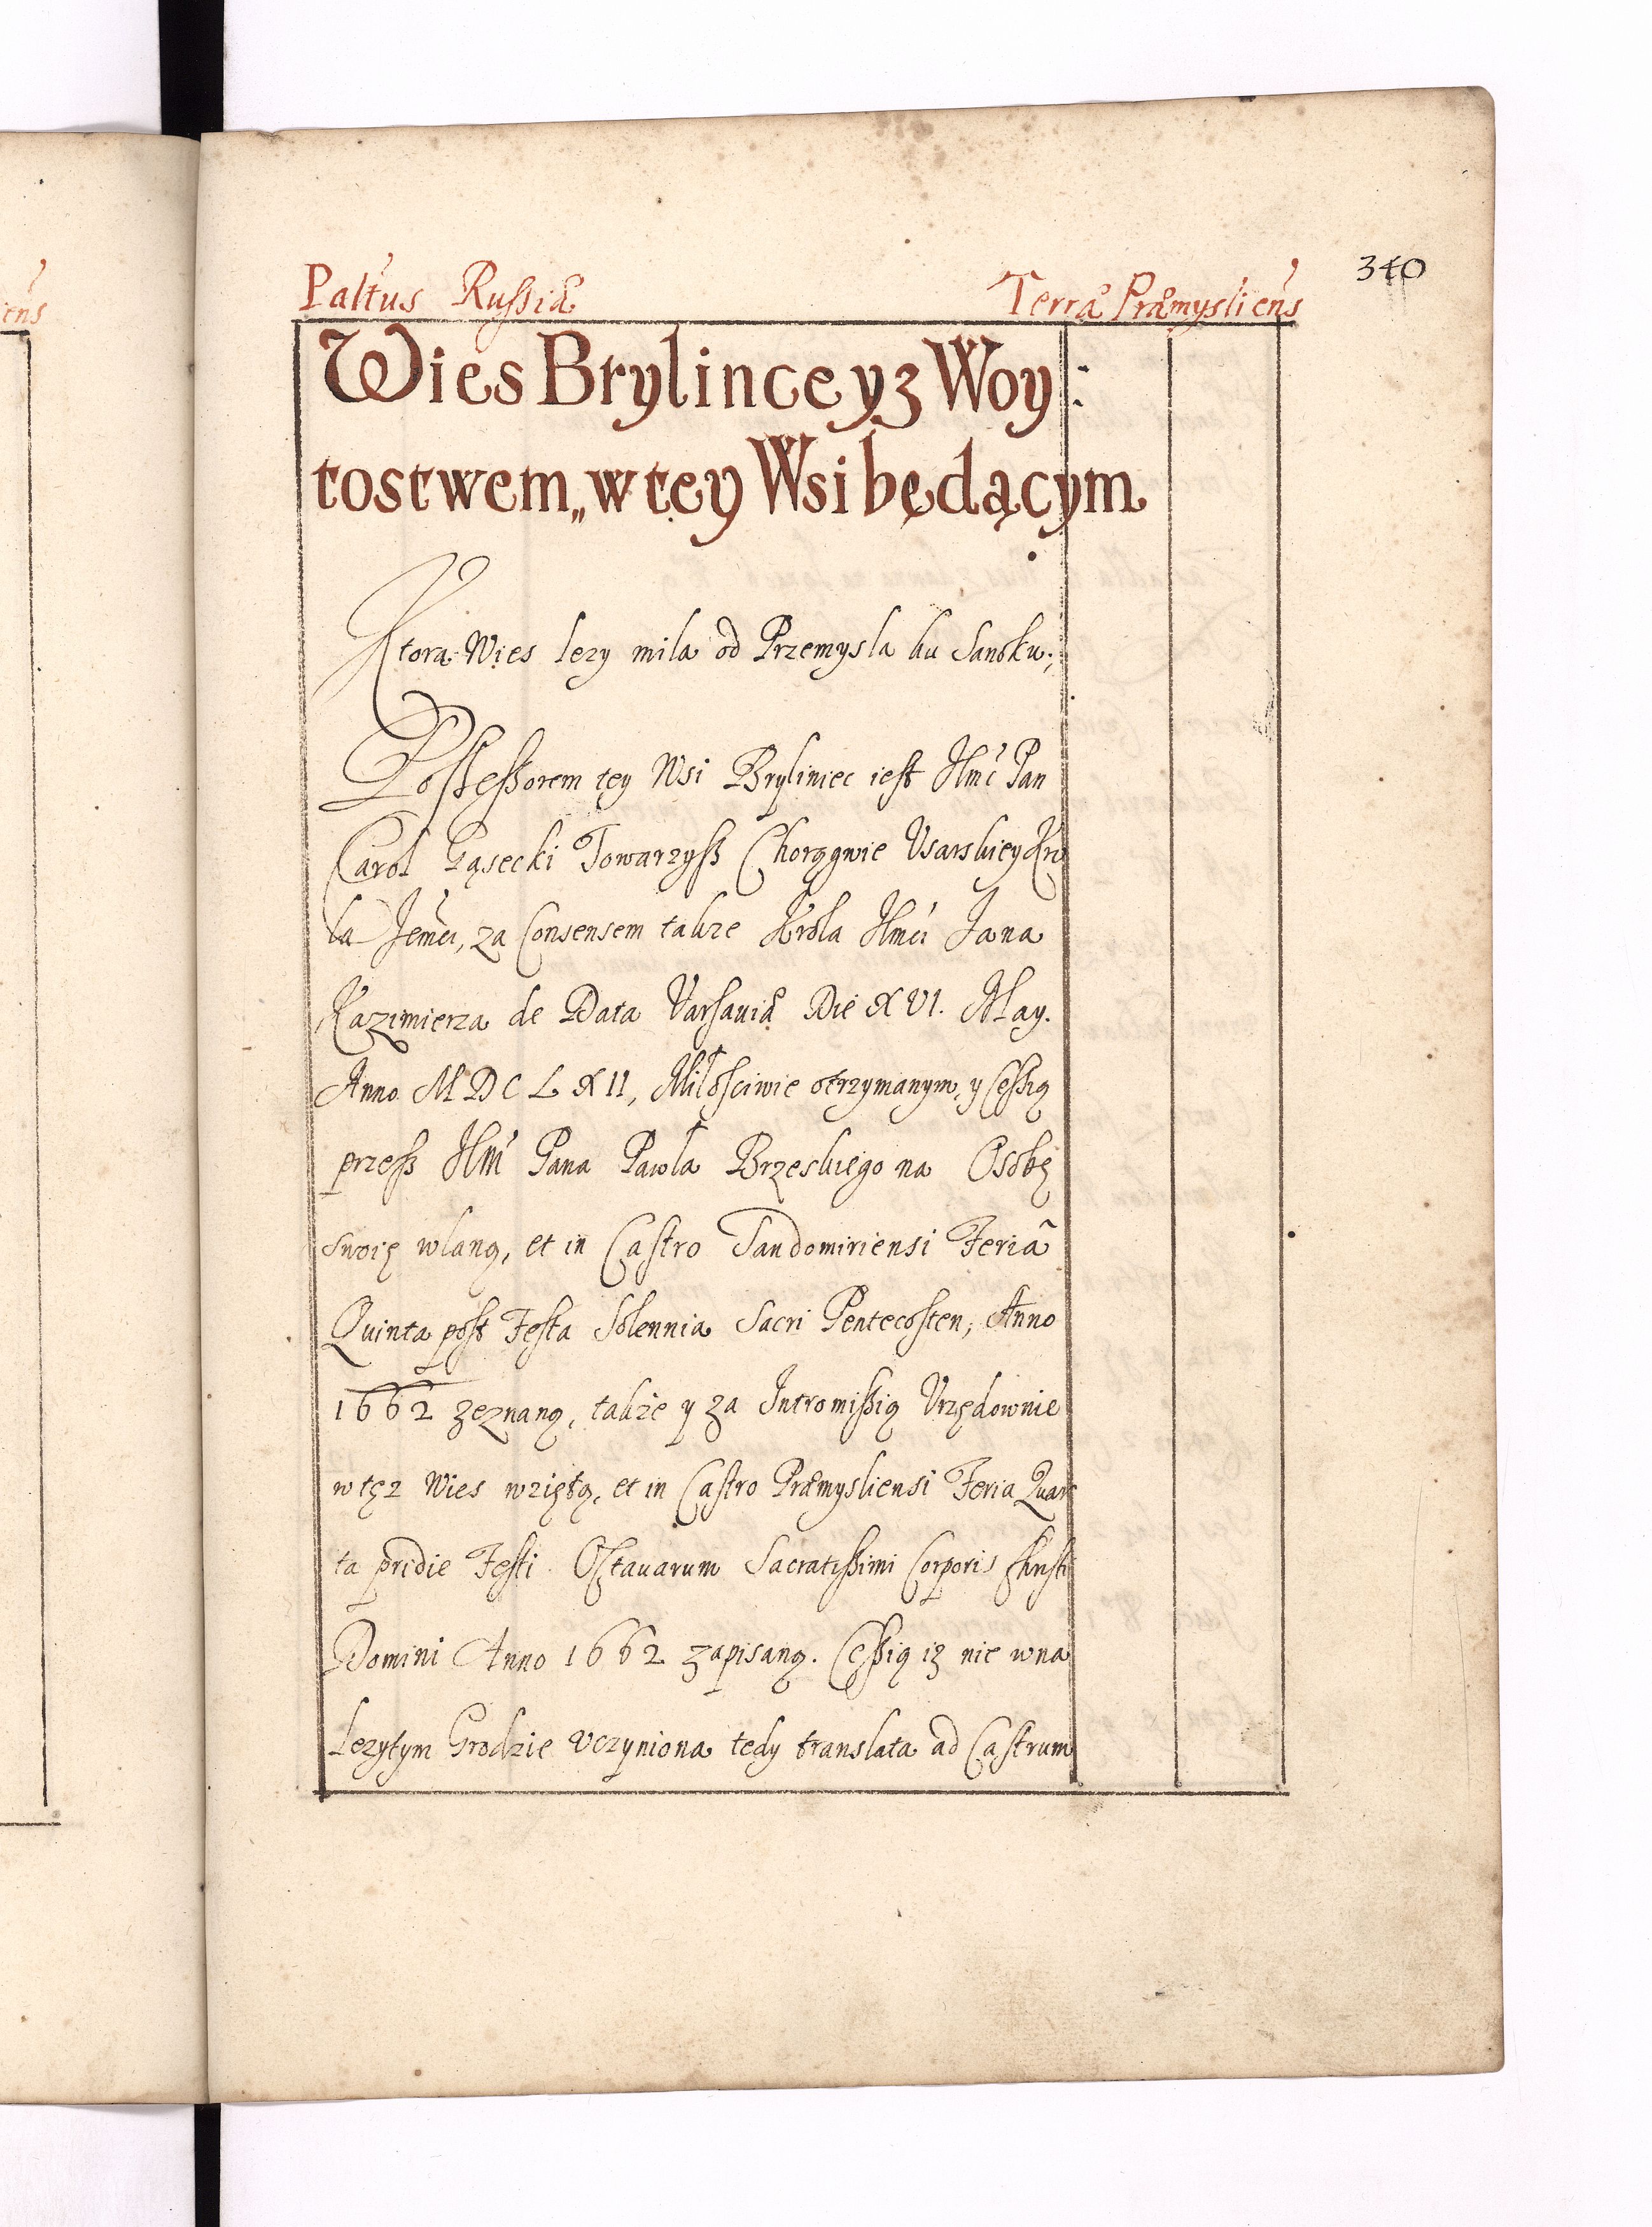 340
Paltus Russiæ Terræ Præmysliens
Wies Brylince yz Woy:
tostwem„ w tey Wsi będącym
Ktora Wies lezy mila od Przemysla ku Sanoku;
Possessorem tey Wsi Bryliniec iest Jmć Pan
Carol Gąsecki Towarzysz Chorągwie Usarskiey Kro
la Jemći, za Consensem takze Króla Jmći Jana
Kazimierza de Data Varsaviæ Die XVI. May.
Anno MDCLXII, Miłosciwie otrzymanym, y Cessią
przesz Jm Pana Pawła Brzeskiego na Osobę
swoię wlaną, et in Castro Sandomiriensi Feriâ
Quinta post Festa Solennia Sacri Pentecosten, Anno
1662 zeznaną, także y za Intromissią Urzędownie
w tęz Wies wziętą, et in Castro Præmysliensi Feria Quar
ta pridie Festi Octavarum Sacratissimi Corporis Christi
Domini Anno 1662 zapisaną. Cessią iz nie w na
lezytym Grodzie uczyniona tedy translata ad Castrum
iens